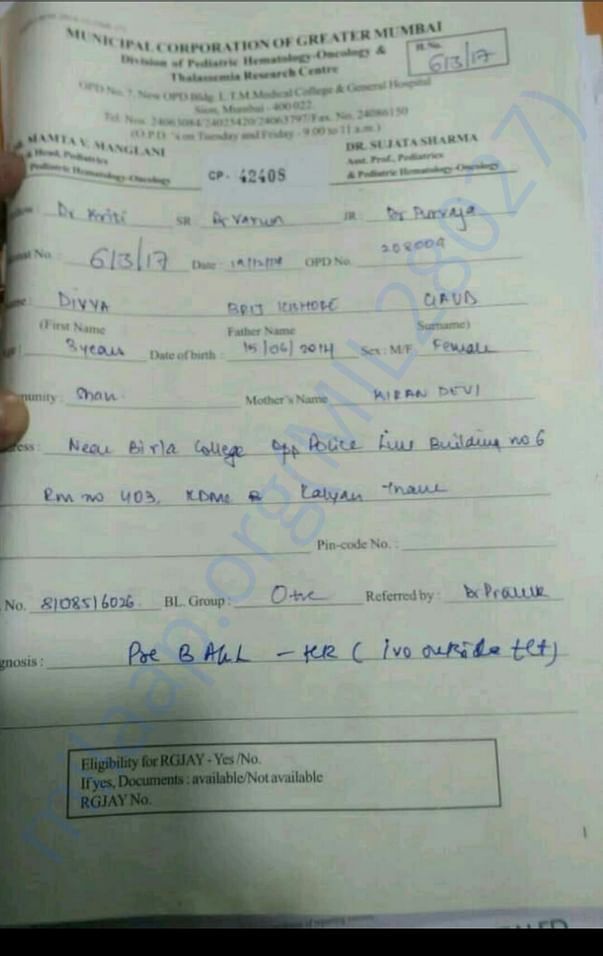 MUNICIPAL CORPORATION OF GREATER MUMBAI
Division of Pediatric Hematology-Oncology &
Thalassemia Research Centre
H. No.
6/3/17
OPD No. 7, New OPD Bldg. L.T.M. Medical College & General Hospital
Sion, Mumbai - 400 022.
Tel. Nos. 24063084/24023420/24063797/Fax. No. 24086150
(O.P.D. 's on Tuesday and Friday - 9.00 to 11 a.m.)
MAMTA V. MANGLANI
Head, Pediatrics
Pediatric Hematology-Oncology
CP- 42408
DR. SUJATA SHARMA
Asst. Prof., Pediatrics
& Pediatric Hematology-Oncology
Dr Kriti SR Dr Varun JR Dr Purvaja
No. : 6/3/17 Date : OPD No. 208004
DIVYA BRIJ KISHORE GAUD
(First Name Father Name Surname)
3 years Date of birth : 15/06/2014 Sex : M/F Female
munity : Mother's Name KIRAN DEVI
ress : Near Birla College Opp Police Line Building no 6
Rm no 403, KDMC Kalyan Thane
Pin-code No. :
No. 8108516026 BL. Group : O+ve Referred by :
gnosis : Pre B ALL - HR ( outside
Eligibility for RGJAY - Yes /No.
If yes, Documents : available/Not available
RGJAY No.
milaap.org(MIL28027)